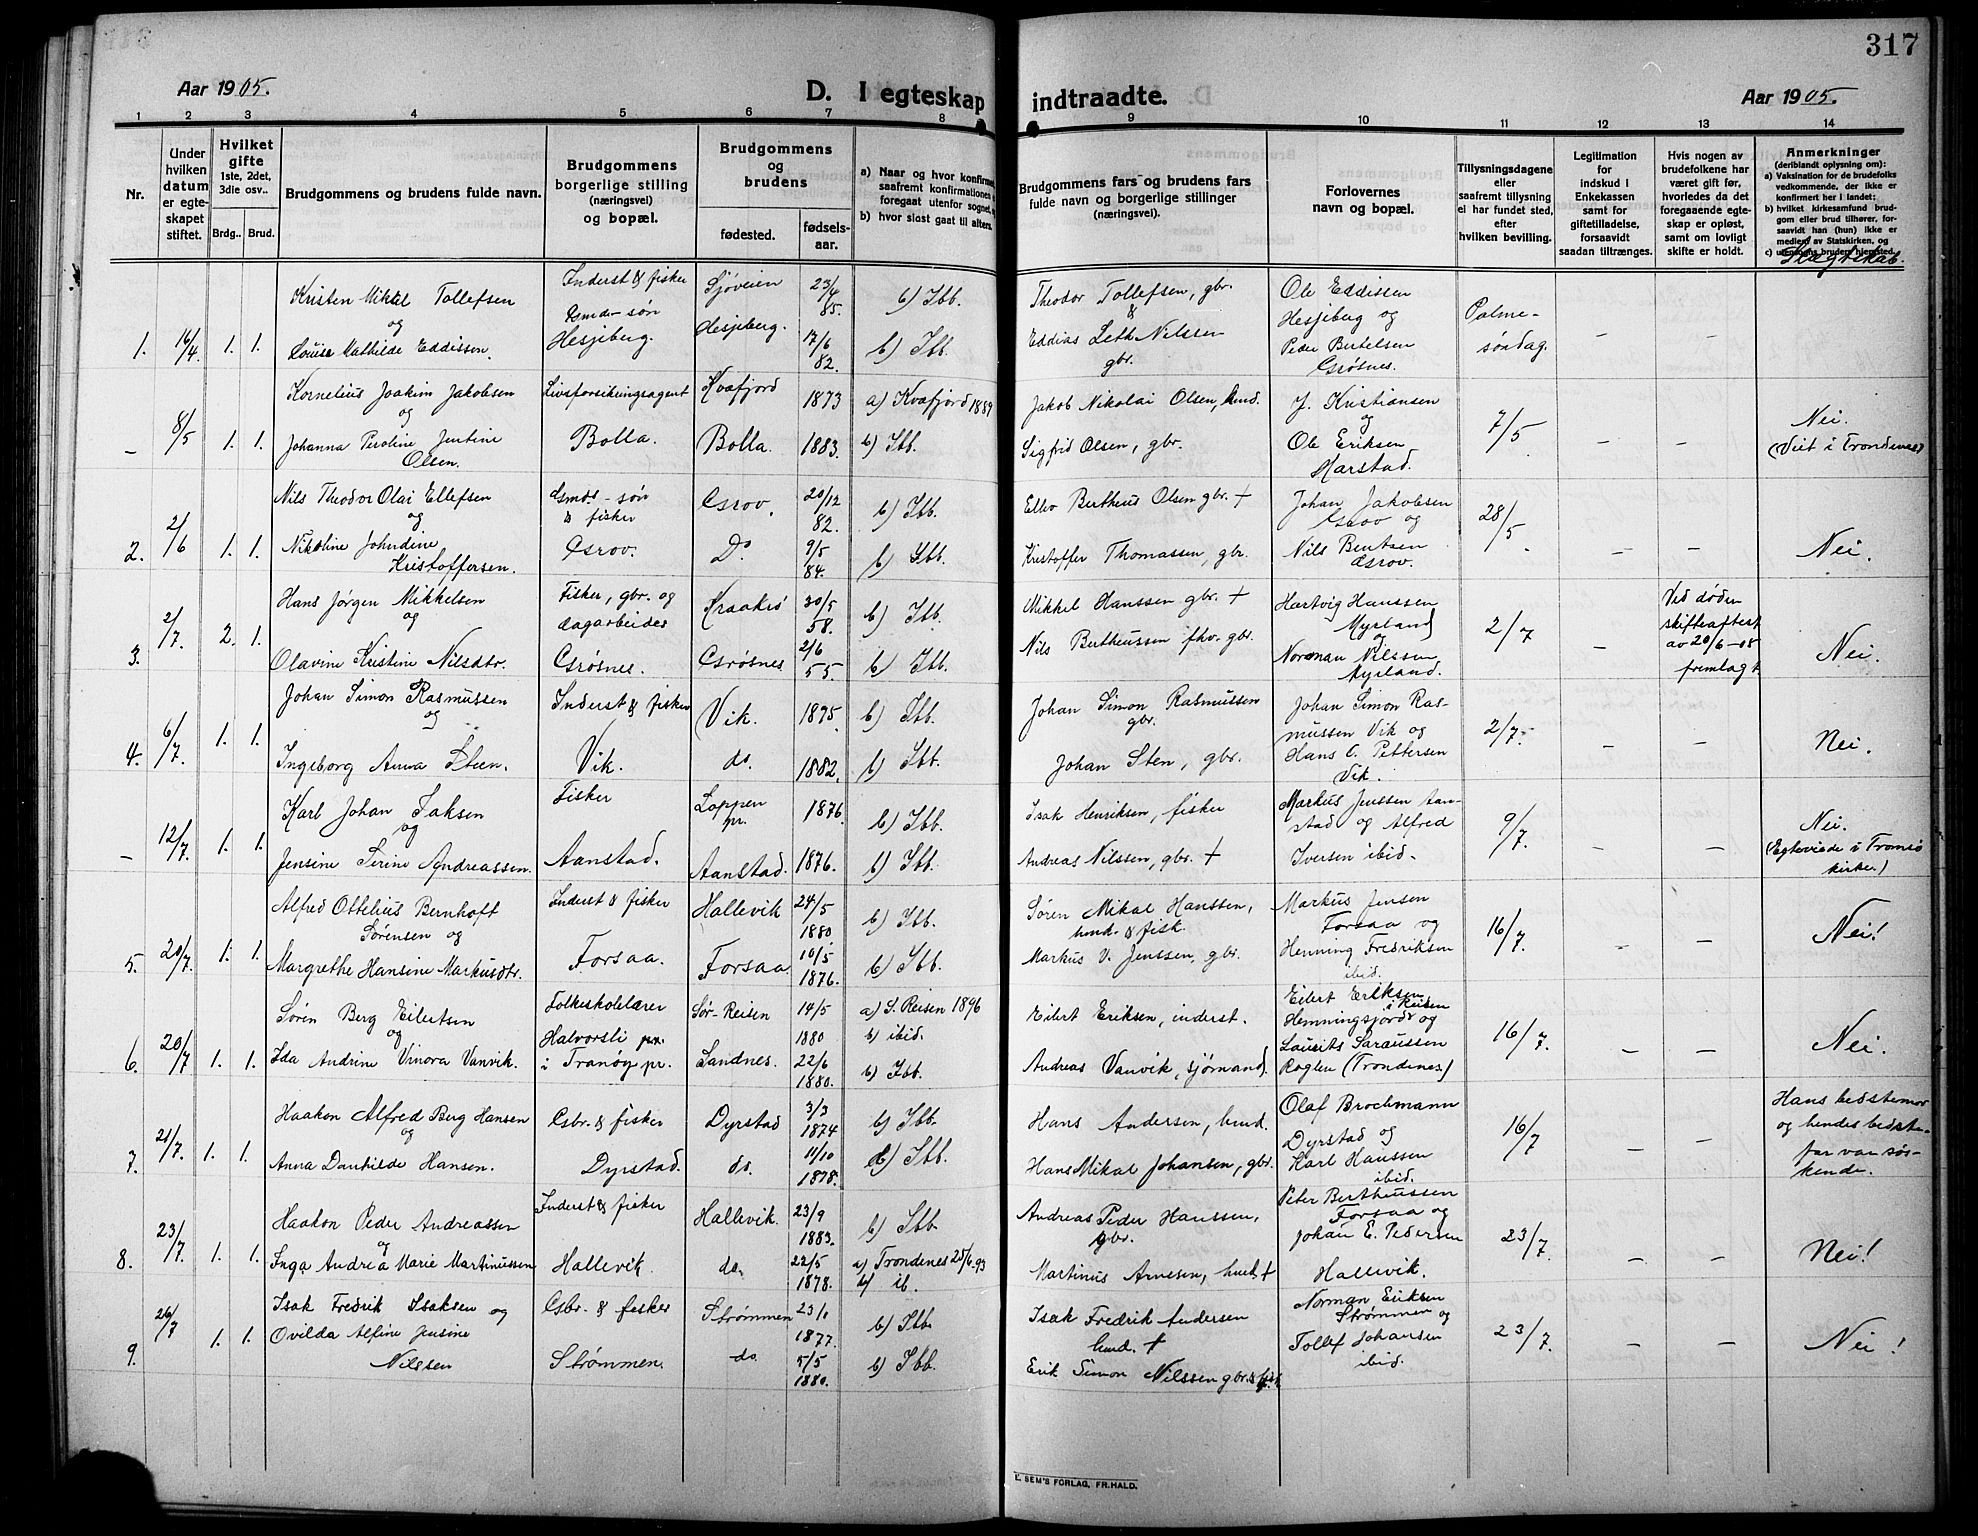 317
Aar 1905.
D. I egteskap indtraadte.
Aar 1905.
1 2 3 4 5 6 7 8 9 10 11 12 13 14
Nr.
Under hvilken datum er egte-skapet stiftet.
Hvilket gifte 1ste, 2det, 3die osv..
Brdg.. Brud.
Brudgommens og brudens fulde navn.
Brudgommens borgerlige stilling (næringsvei) og bopæl.
Brudgommens og brudens
fødested. fødsels-aar.
a) Naar og hvor konfirm. saafremt konfirmationen foregaat utenfor sognet,
b) hvor sidst gaat til alters.
Brudgommens fars og brudens fars fulde navn og borgerlige stillinger (næringsvei).
Forlovernes navn og bopæl.
Tillysningsdagene eller saafremt tillysning ei har fundet sted, efter hvilken bevilling.
Legitimation for indskud i Enkekassen samt for giftetilladelse, forsaavidt saadan tiltrænges.
Hvis nogen av brudefolkene har været gift før, hvorledes da det foregaaende egte-skap er opløst, samt om lovligt skifte er holdt.
Anmerkninger (deriblandt oplysning om): a) Vaksination for de brudefolks vedkommende, der ikke er konfirmert her i landet; b) hvilket kirkesamfund brud-gom eller brud tilhører, for-saavidt han (hun) ikke er medlem av Statskirken, og
Slegtskab.
1. 16/4 1. 1. Kristen Mikkel Tollefsen og Louise Mathilde Eddissen.
Inderst & fisker Gmds-søn Hesjeberg.
Sjøveien 23/4 85. b) Ibb.
Hesjeberg. 17/6 82. b) Ibb.
Theodor Tollefsen, gbr. & Eddias Leth Nilssen gbr.
Ole Eddissen Hesjeberg og Peder Bertelsen Grøsnes.
Palme-søndag. – –
– 8/5 1. 1. Kornelius Joakim Jakobsen og Johanna Peroline Jentine Olsen.
Livsforsikringsagent Bolla.
Kvæfjord 1873 a) Kvæfjord 1889
Bolla. 1883. b) Ibb.
Jakob Nikolai Olsen, hmd.
Sigfrid Olsen, gbr.
J. Kristiansen og Ole Eriksen Harstad.
7/5 – – Nei. (Viet i Trondenes)
2. 2/6 1. 1. Nils Theodor Olai Ellefsen og Nikoline Johndine Kristoffersen.
Gmds-søn & fisker Grov.
Grov. 20/12 82. b) Ibb.
Do 9/5 84. b) Ibb.
Ellev Bertheus Olsen gbr. +
Kristoffer Thomassen, gbr.
Johan Jakobsen Grov og Nils Bentsen Grov.
28/5. – – Nei.
3. 2/7 2. 1. Hans Jørgen Mikkelsen og Olavine Kristine Nilsdtr.
Fisker, gbr. og dagarbeider Grøsnes.
Kraakrø 30/5 58. b) Ibb.
Grøsnes 2/6 55. b) Ibb.
Mikkel Hanssen gbr. +
Nils Bertheussen fhv. gbr.
Hartvig Hanssen Myrland og Norman Nilssen Myrland.
2/7 – Ved døden skifteattest av 20/6-05 fremlagt. Nei.
4. 6/7. 1. 1. Johan Simon Rasmussen og Ingeborg Anna Steen.
Inderst & fisker Vik.
Vik. 1875. b) Ibb.
do. 1882. b) Ibb.
Johan Simon Rasmussen gbr.
Johan Sten, gbr.
Johan Simon Ras-mussen Vik og Hans C. Pettersen Vik.
2/7. – – Nei.
– 12/7. 1. 1. Karl Johan Isaksen og Jensine Serine Andreassen.
Fisker Aanstad.
Loppen pr. 1876. b) Ibb.
Aanstad. 1876. b) Ibb.
Isak Henriksen, fisker
Andreas Nilssen, gbr. +
Markus Jenssen Aan-stad og Alfred Iversen ibid.
9/7. – – Nei. (Egteviede i Tromsø kirke.)
5. 20/7. 1. 1. Alfred Ottelius Bernhoft Sørensen og Margrethe Hansine Markusdtr.
Inderst & fisker Forsaa.
Hallevik 24/5 1880 b) Ibb.
Forsaa. 10/5 1876. b) Ibb.
Søren Mikal Hanssen, hmd. & fisk.
Markus V. Jenssen, gbr.
Markus Jensen Forsaa og Henning Fredriksen ibid.
16/7. – – Nei!
6. 20/7 1. 1. Søren Berg Eilertsen og Ida Andrine Vinora Vanvik.
Folkeskolelærer Halvorsli i Tranøy pr.
Sør-Reisen 14/5 1880 a) S. Reisen 1896 b) ibid.
Sandnes. 22/6 1880. b) Ibb.
Eilert Eriksen, inderst.
Andreas Vanvik, sjømand.
Eilert Eriksen i Reisen Hemningsjord og Laurits Saraussen Roglen (Trondenes)
16/7. – – Nei.
7. 21/7. 1. 1. Haakon Alfred Berg Hansen og Anna Danhilde Hansen.
Gbr. & fisker Dyrstad.
Dyrstad 3/3 1874 b) Ibb.
do. 11/10 1878. b) Ibb.
Hans Andersen, hmd.
Hans Mikal Johansen, gbr.
Olaf Brochmann Dyrstad og Karl Hanssen ibid.
16/7 – – Hans bedstemor og hendes bedste-far var søs-kende.
8. 23/7. 1. 1. Haakon Peder Andreassen og Inga Andrea Marie Martinussen
Inderst & fisker Hallevik.
Hallevik. 23/9 1883. b) Ibb.
do. 22/5 1878. a) Trondenes 25/6 93 b) ib.
Andreas Peder Hanssen, gbr.
Martinus Arnesen, hmd. +
Peter Berthussen Forsaa og Johan E. Pedersen Hallevik.
23/7. – – Nei!
9. 26/7 1. 1. Isak Fredrik Isaksen og Ovilda Alfine Jensine Nilssen
Gbr. & fisker Strømmen.
Strømmen 23/1 1877. b) Ibb.
do. 5/5 1880. b) Ibb.
Isak Fredrik Andersen hmd. +
Erik Simon Nilssen gbr. & fisk.
Norman Eriksen Strømmen og Tollef Johansen ibid.
23/7. – – Nei!
E. SEM'S FORLAG, FR.HALD.